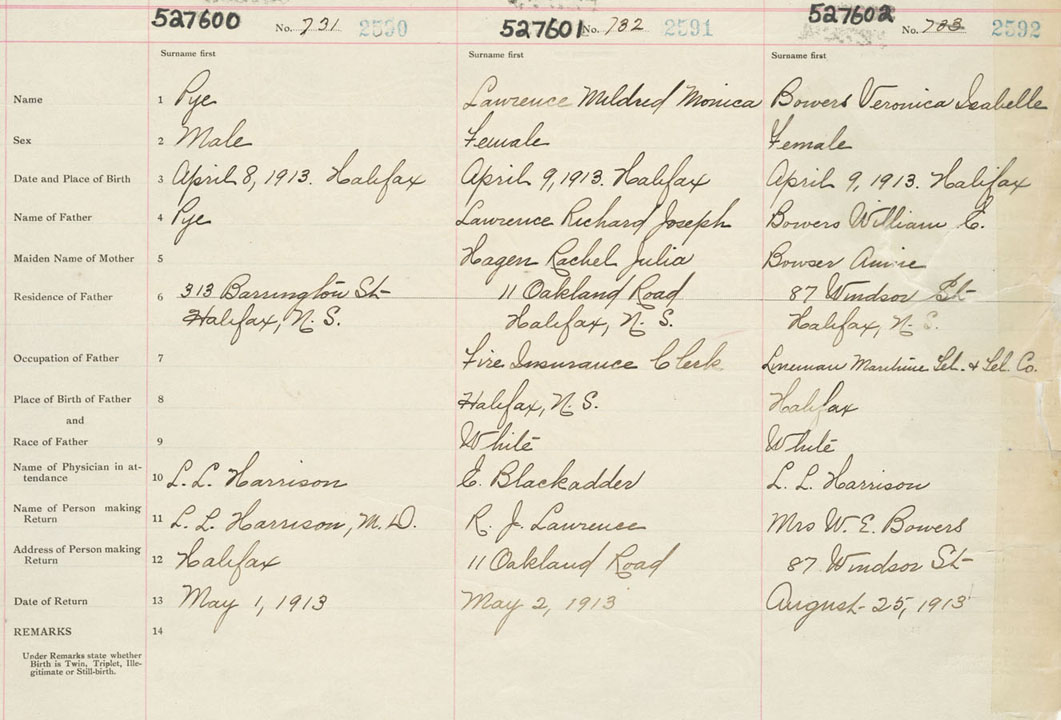 527600 No. 731 2590 527601 No. 732 2591 527602 No. 733 2592
Surname first Surname first Surname first
Name 1 Pye Lawrence Mildred Monica Bowers Veronica Isabelle
Sex 2 Male Female Female
Date and Place of Birth 3 April 8, 1913. Halifax April 9, 1913. Halifax April 9, 1913. Halifax
Name of Father 4 Pye Lawrence Richard Joseph Bowers William E.
Maiden Name of Mother 5 Hagen Rachel Julia Bowser Annie
Residence of Father 6 313 Barrington St 11 Oakland Road 87 Windsor St
Halifax, N.S. Halifax, N.S. Halifax, N.S.
Occupation of Father 7 Fire Insurance Clerk Lineman Maritime Tel. & Tel. Co.
Place of Birth of Father 8 Halifax, N.S. Halifax
and
Race of Father 9 White White
Name of Physician in at-
tendance 10 L. L. Harrison E. Blackadder L. L. Harrison
Name of Person making
Return 11 L. L. Harrison, M.D. R. J. Lawrence Mrs W. E. Bowers
Address of Person making
Return 12 Halifax 11 Oakland Road 87 Windsor St
Date of Return 13 May 1, 1913 May 2, 1913 August 25, 1913
REMARKS 14
Under Remarks state whether
Birth is Twin, Triplet, Ille-
gitimate or Still-birth.